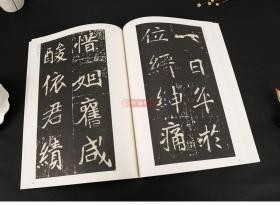 一日卒於
位縉紳痛
惜姻舊咸
酸依君績